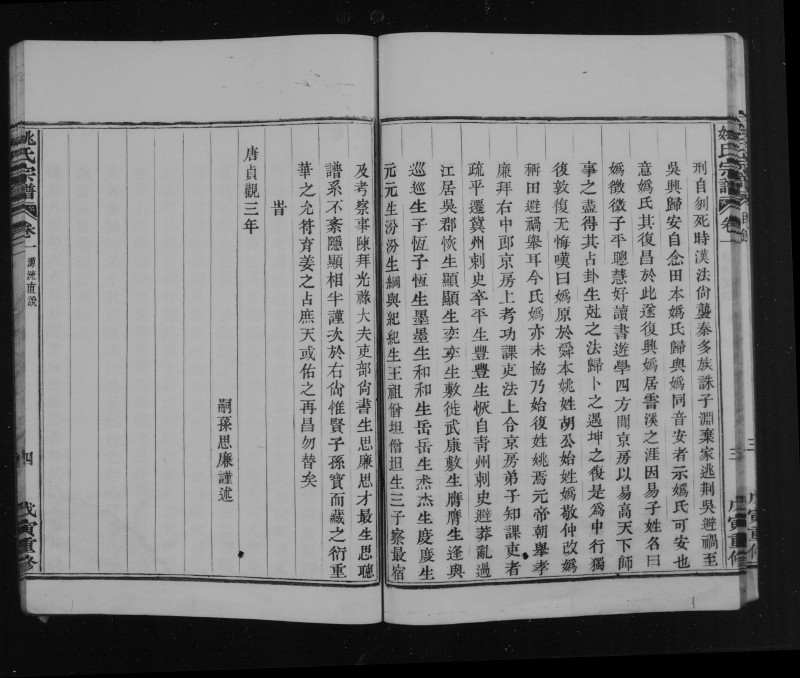 姚氏宗譜 卷一 三 戊寅重修
刑自刎死時漢法尙襲秦多族誅子淵棄家逃荆吳避禍至
吳興歸安自念田本嬀氏歸與嬀同音安者示嬀氏可安也
意嬀氏其復昌於此遂復興嬀居霅溪之涯因易子姓名曰
嬀徵徵子平聰慧好讀書遊學四方聞京房以易高天下師
事之盡得其占卦生尅之法歸卜之遇坤之復是爲中行獨
復敦復无悔嘆曰嬀原於舜本姚姓胡公始姓嬀敬仲改嬀
稱田避禍舉耳今氏嬀亦未協乃始復姓姚焉元帝朝舉孝
廉拜右中郎京房上考功課吏法上令京房弟子知課吏者
疏平遷冀州刺史卒平生豐豐生恢自靑州刺史避莽亂過
江居吳郡恢生顯顯生奕奕生敷徙武康敷生膺膺生逢與
巡巡生子恆子恆生墨墨生和和生岳岳生焘杰生虔虔生
元元生汾汾生綱與紀紀生王祖僧坦僧坦生三子察最宿
及考察事陳拜光祿大夫吏部尙書生思廉思才最生思聰
譜系不紊隱顯相半謹次於右尙惟賢子孫寶而藏之衍重
華之允符育姜之占庶天或佑之再昌勿替矣
旹
唐貞觀三年
嗣孫思廉謹述
姚氏宗譜 卷一 源流直說 四 戊寅重修